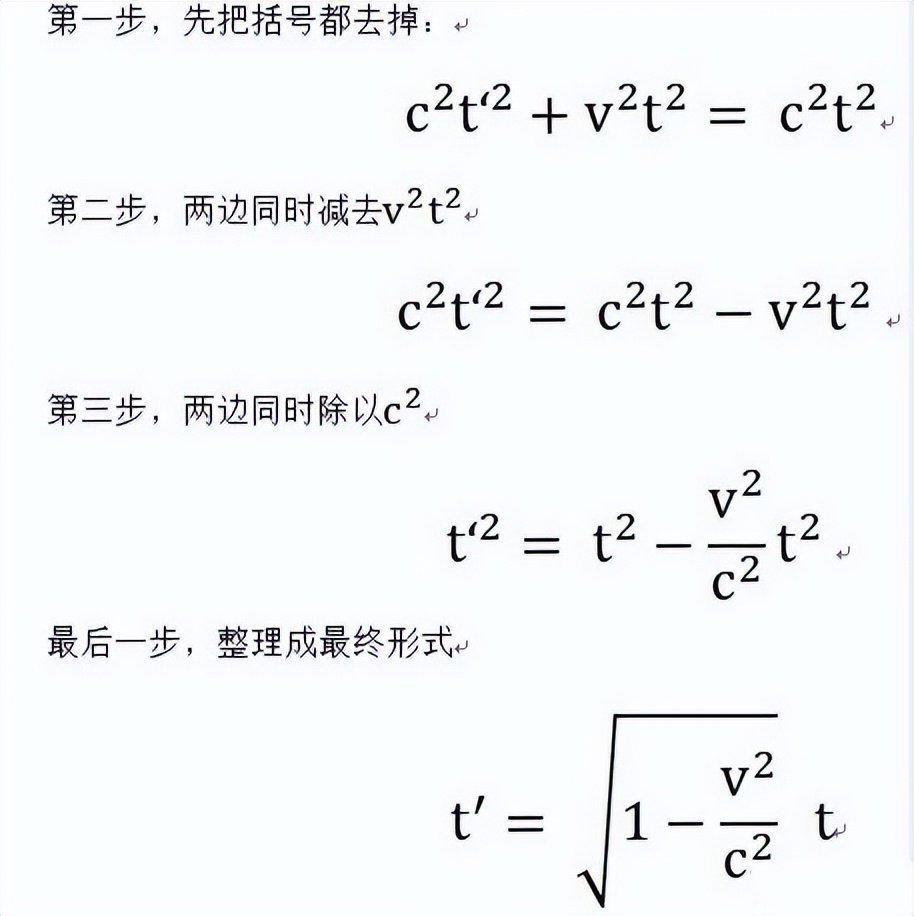 第一步，先把括号都去掉：
c²t‘² + v²t² = c²t²
第二步，两边同时减去v²t²
c²t‘² = c²t² − v²t²
第三步，两边同时除以c²
t‘² = t² − v²/c² t²
最后一步，整理成最终形式
t′ = √(1 − v²/c²) t